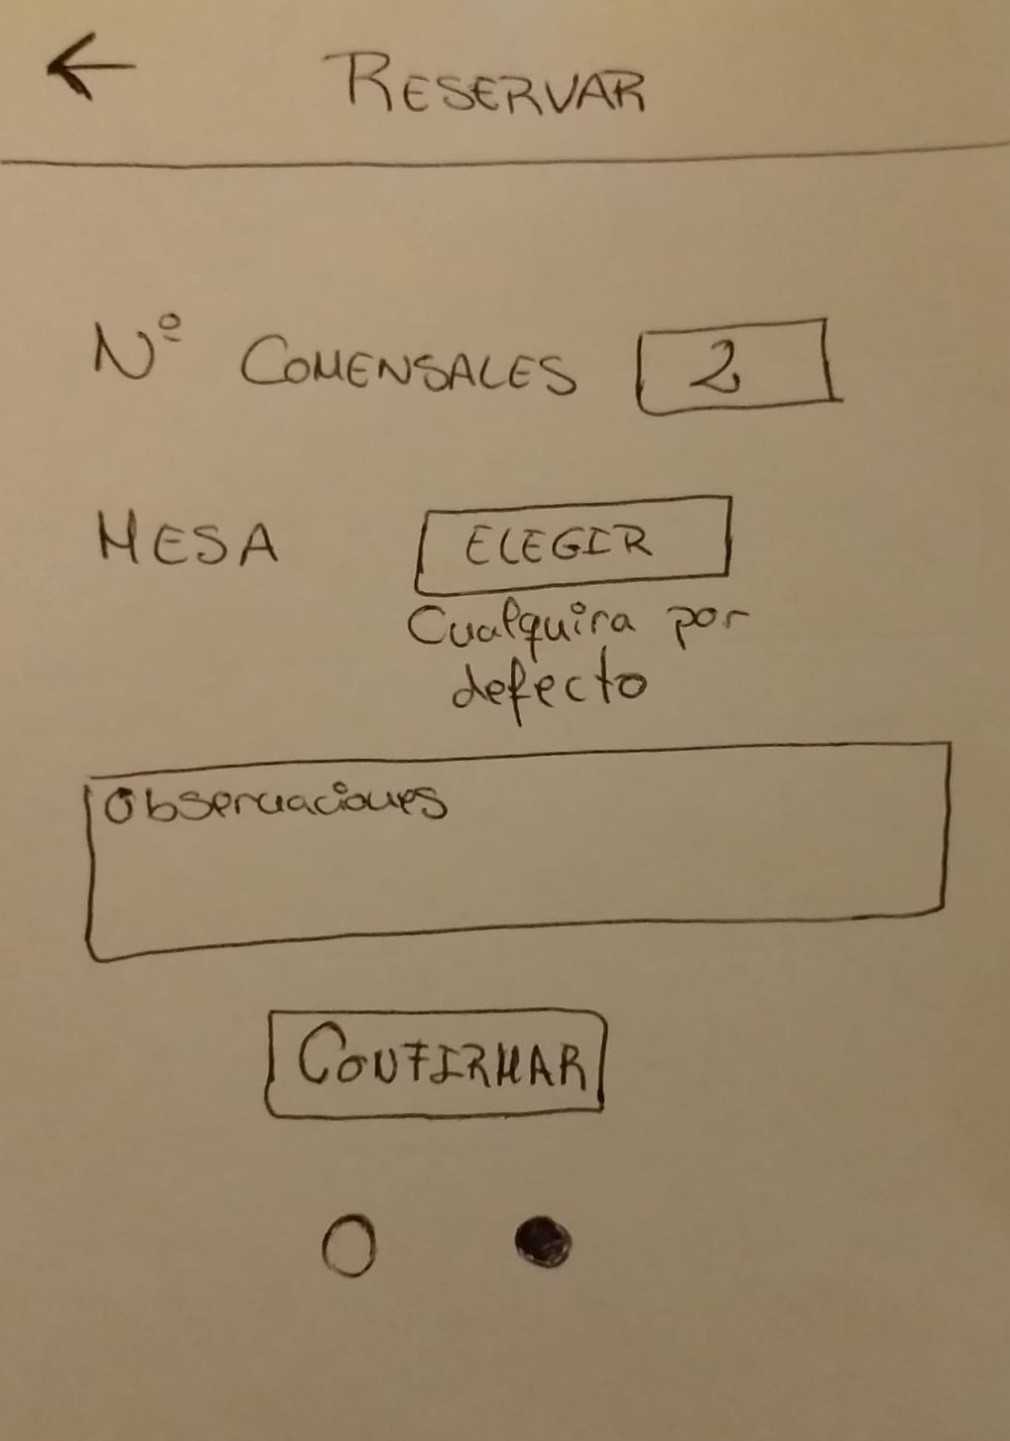 RESERVAR
Nº COMENSALES 2
MESA ELEGIR
Cualquira por
defecto
Observaciones
CONFIRMAR